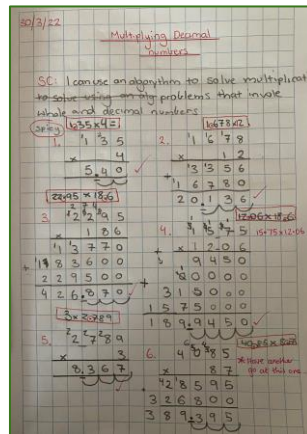 30/3/22
Multiplying Decimal
numbers
SC: I can use an algorithm to solve multiplicat
to solve using an alg problems that invole
whole and decimal numbers
spicy 1.35 x 4 =
1.678 x 12
1. 1 3 5
x 4
5.40
2. 1 6 7 8
x 1 2
3 3 5 6
+ 1 6 7 8 0
20.136
22.95 x 18.6
3. 2 2 9 5
x 1 8 6
1 3 7 7 0
1 8 3 6 0 0
2 2 9 5 0 0
426.870
15.75 x 12.06
4. 1 5 7 5
x 1 2 0 6
9 4 5 0
0 0 0 0 0
3 1 5 0 0 0
1 5 7 5 0 0 0
189.9450
3 x 2.789
5. 2 7 8 9
x 3
8.367
6. 4 4 8 5
x 8 7
2 8 5 9 5
3 2 6 8 0 0
389.395
* have another
go at this one